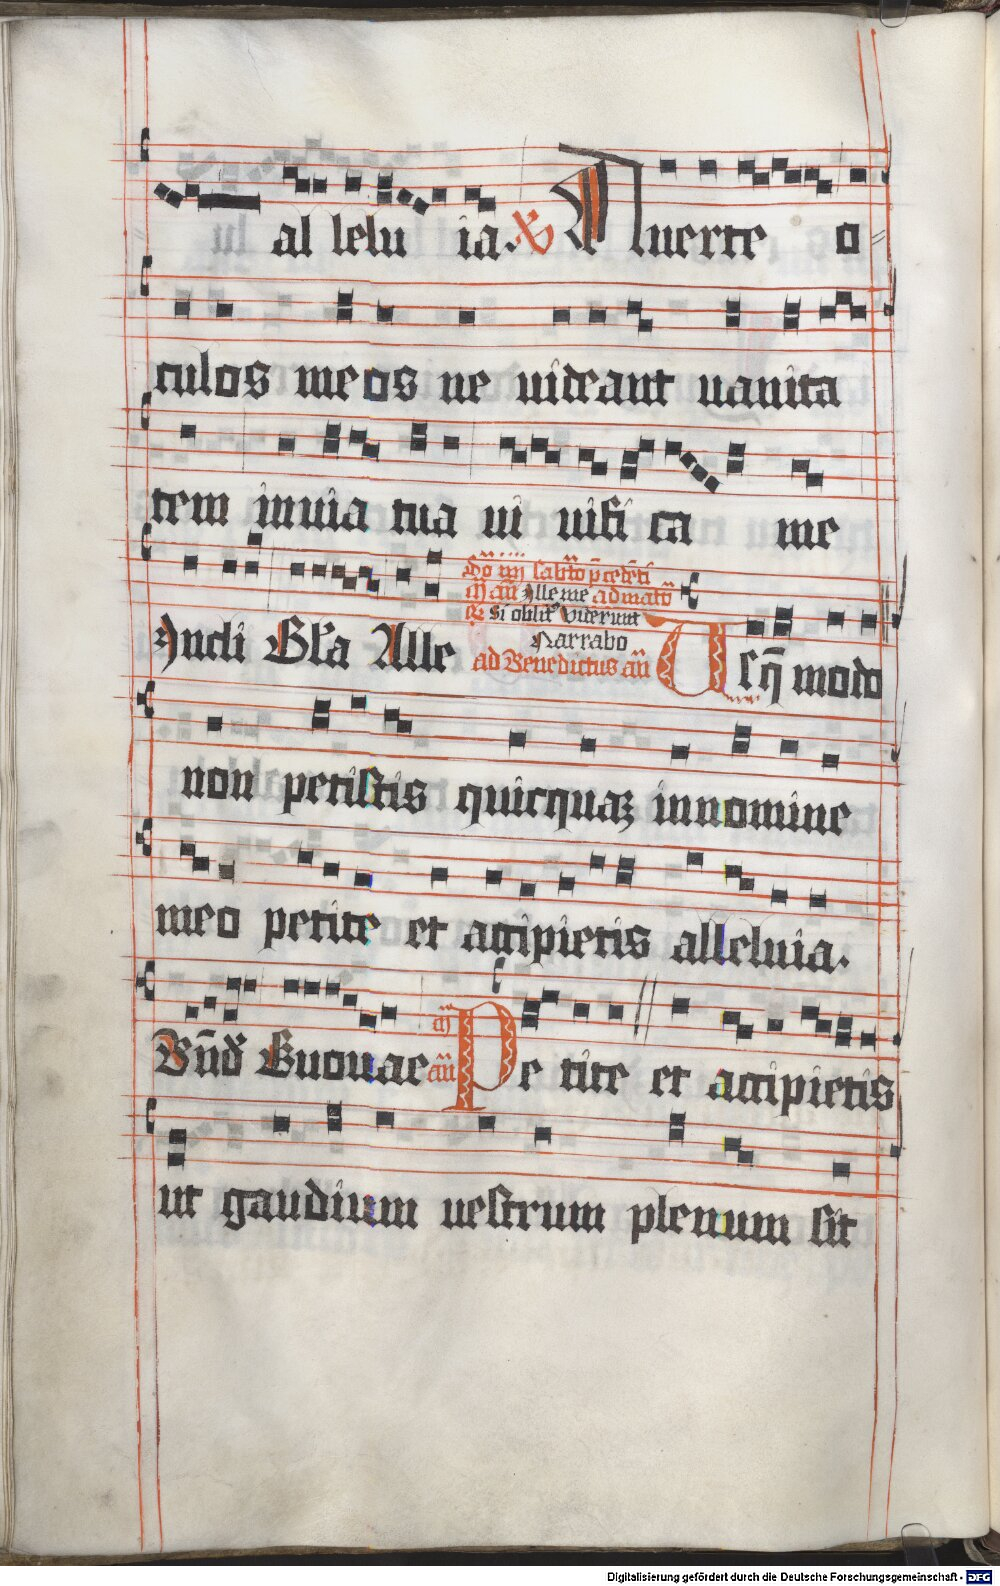 al lelu ia. ℣ Auerte o
culos meos ne uideant uanita
tem inuia tua ui uifi ca me
Incli Gl'a Alle
ad Benedictus an̄
Narrabo
Usq̄ modo
non petistis quicquaꝫ innomine
meo petite et accipietis alleluia.
Bn̄d Euouae an̄ Pe tite et accipietis
ut gaudium uestrum plenum sit
Digitalisierung gefördert durch die Deutsche Forschungsgemeinschaft - DFG